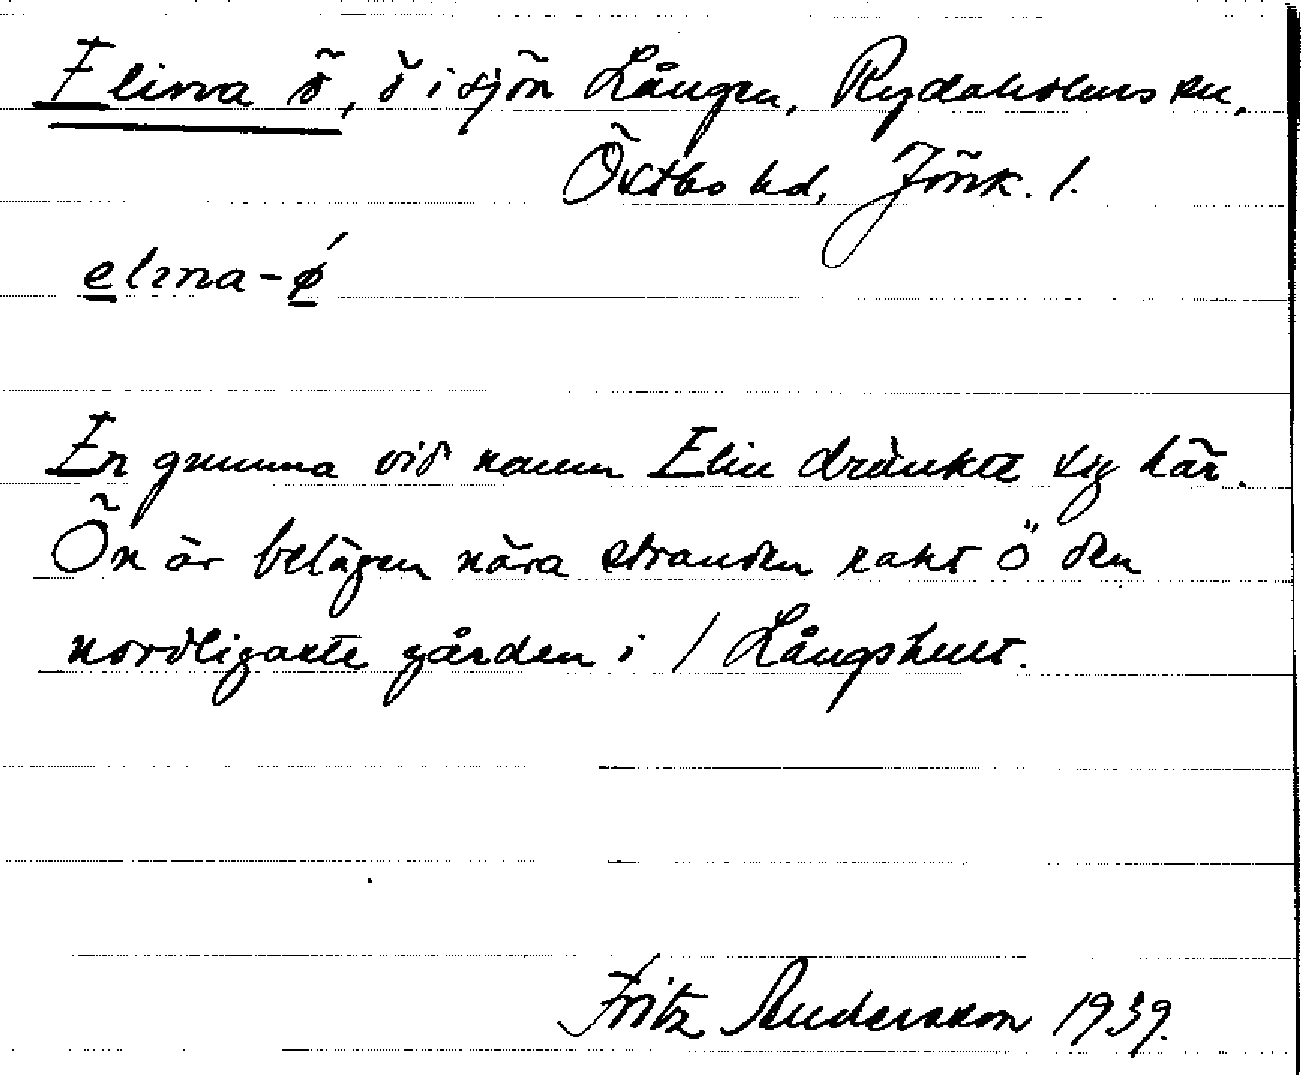 Elina ö, ö i sjön Lången, Rydaholms sn,
Östbo hd, Jönk. l.
elina-ǿ
En gumma vid namn Elin dränkte sig här.
Ön är belägen nära stranden rakt ö den
nordligaste gården i / Långshult.
Fritz Andersson 1939.